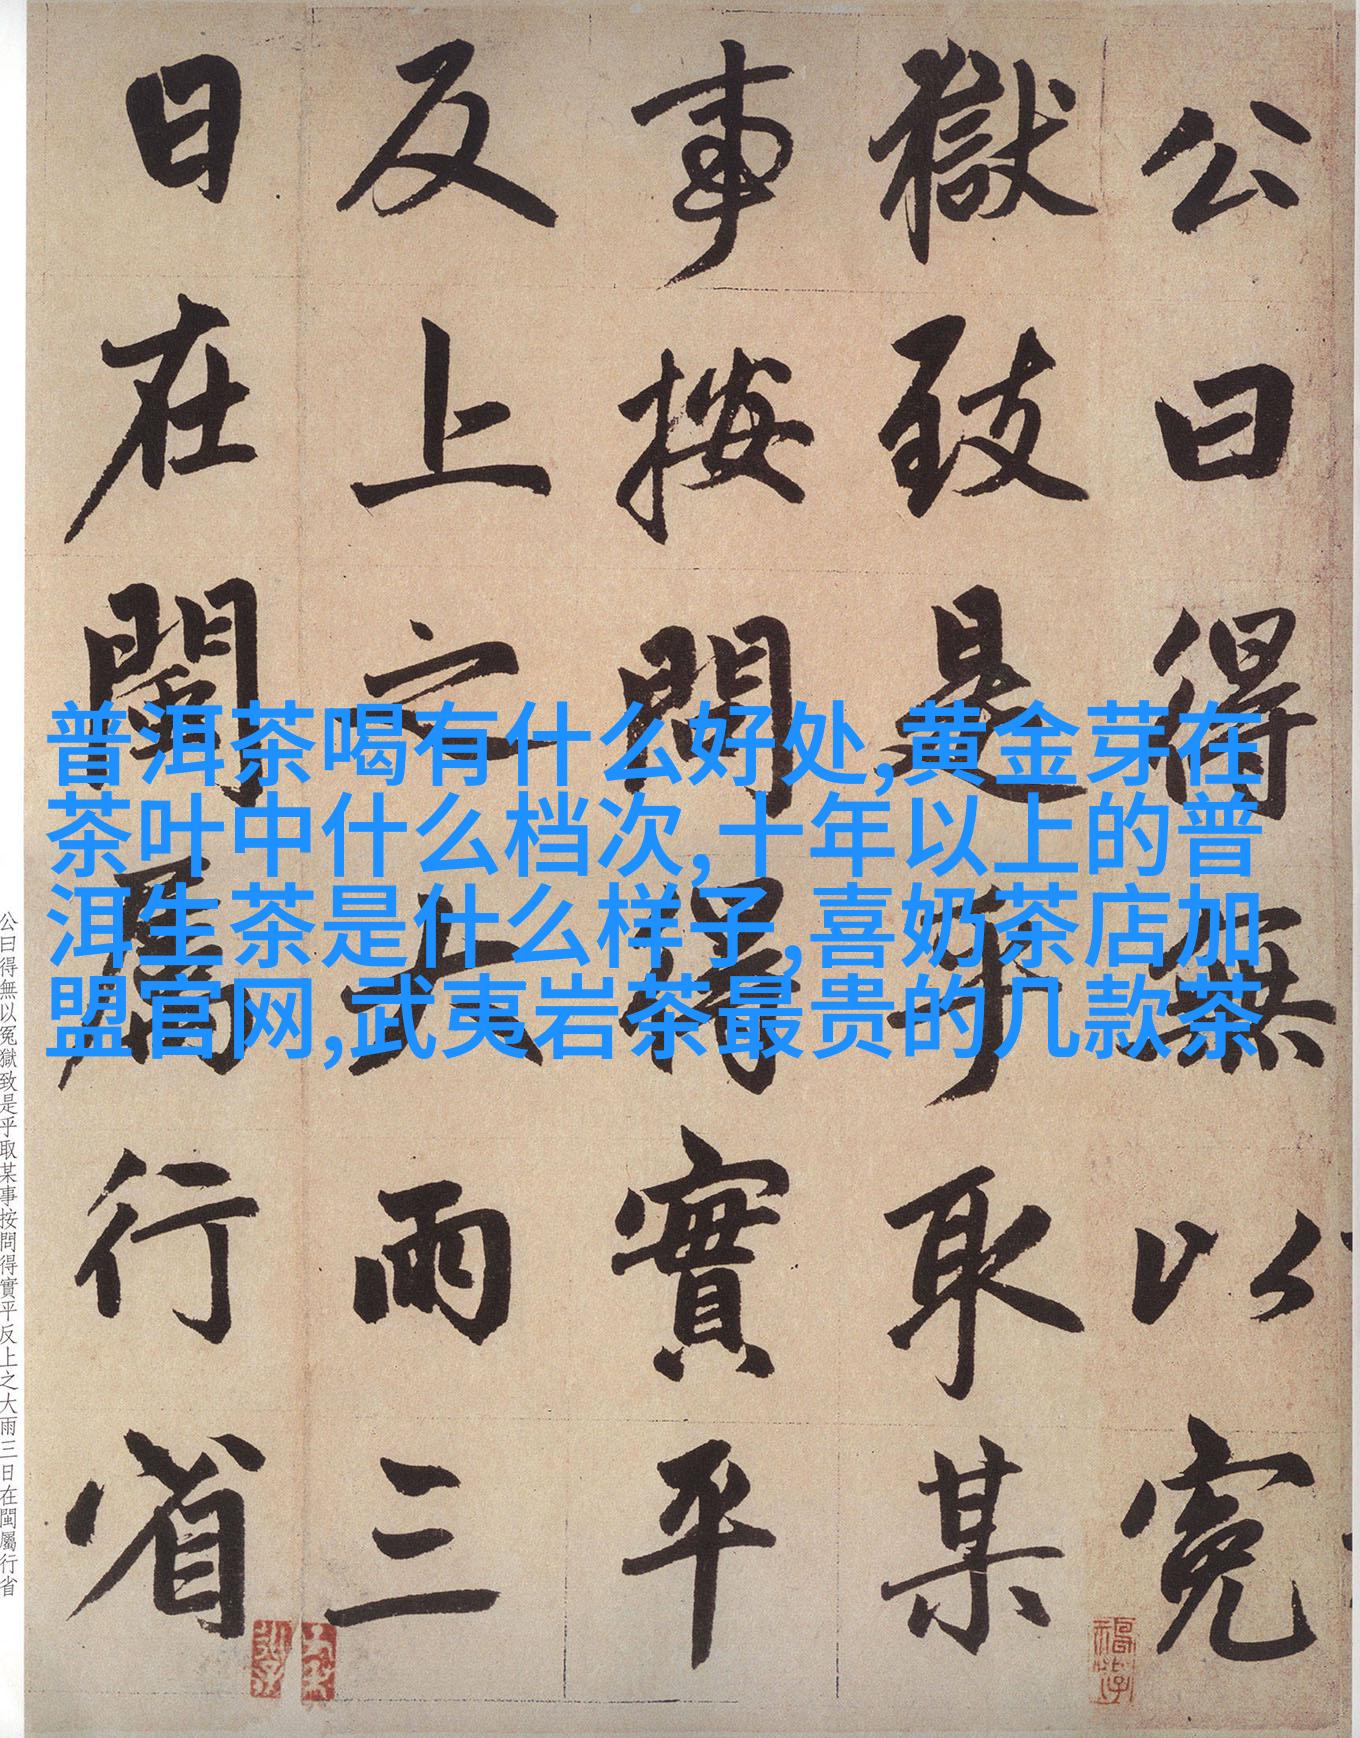 公曰得無以冤
獄致是乎取某
事按問得實平
反上之大雨三
日在閩屬行省
普洱茶喝有什么好处,黄金芽在
茶叶中什么档次,十年以上的普
洱生茶是什么样子,喜奶茶店加
盟官网,武夷岩茶最贵的几款茶
公曰得無以冤獄致是乎取某事按問得實平反上之大雨三日在閩屬行省